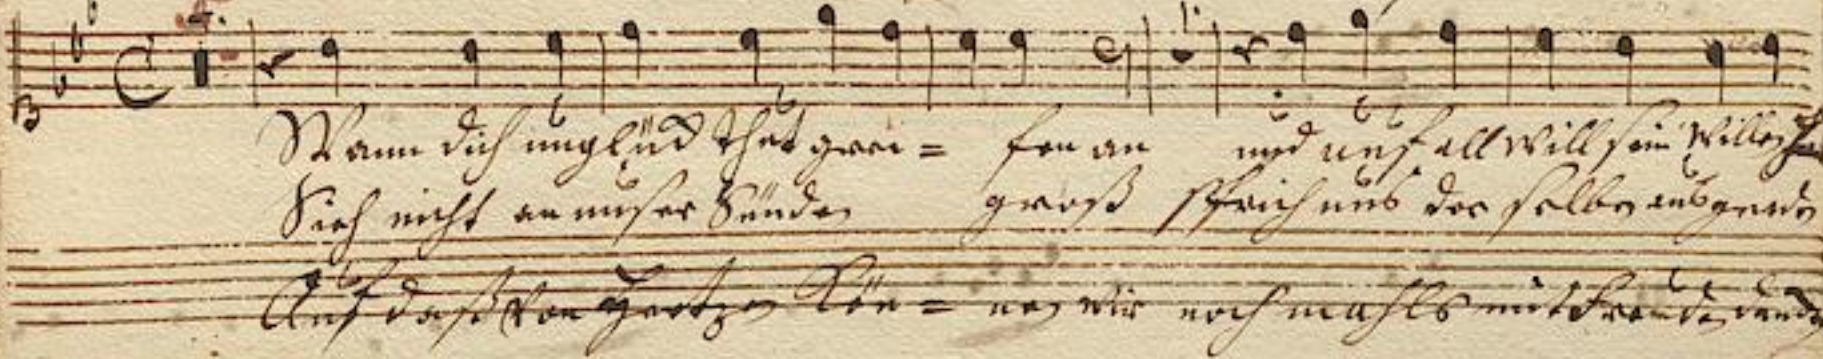 4.
Wann dich unglück thut grei= fen an und unfall will sein Willen han
Sieh nicht an unser Sünden groß sprich uns der selben aus gnaden
Auf daß von Hertzen kön= nen wir nochmahls mit Freuden